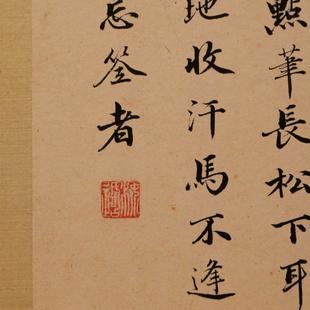 點筆長松下耳
地收汗馬不逢
忘筌者